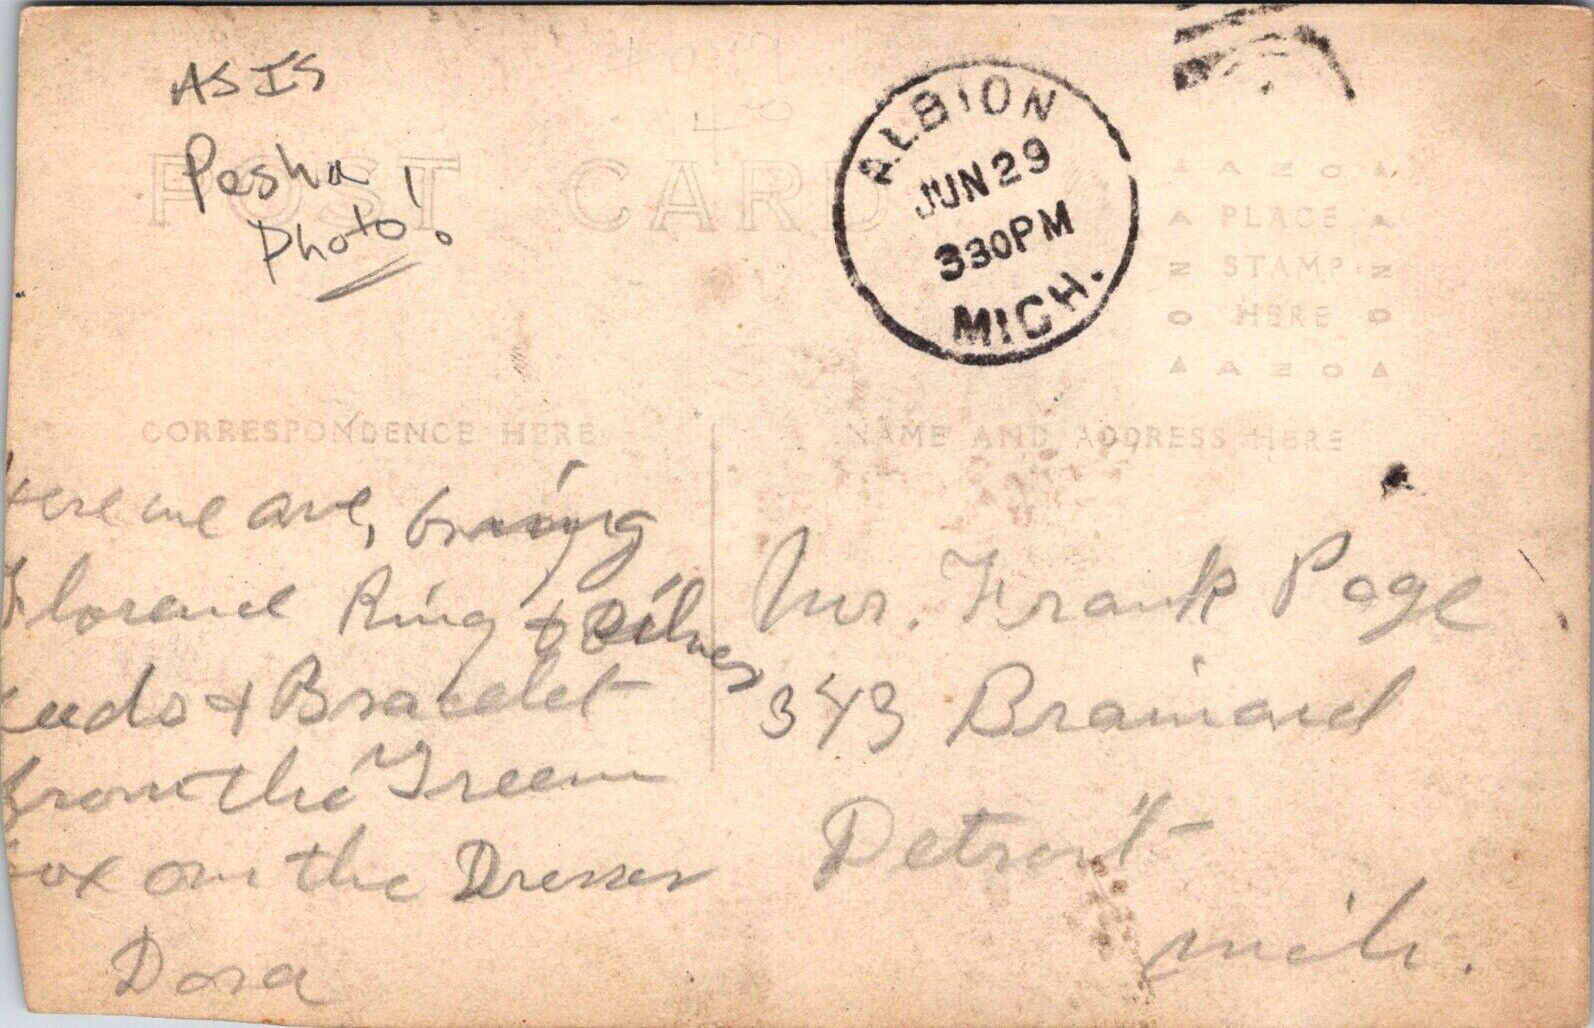 AS IS
Pesha
Photo!
POST CARD
ALBION
JUN 29
330PM
MICH.
AZO
PLACE
STAMP
HERE
AZO
CORRESPONDENCE HERE
NAME AND ADDRESS HERE
Here we are, bring
Florence Ring & Silver
& Bracelet
from the Green
box on the Dresser
Dora
Mr. Frank Page
343 Brainard
Detroit
Mich.